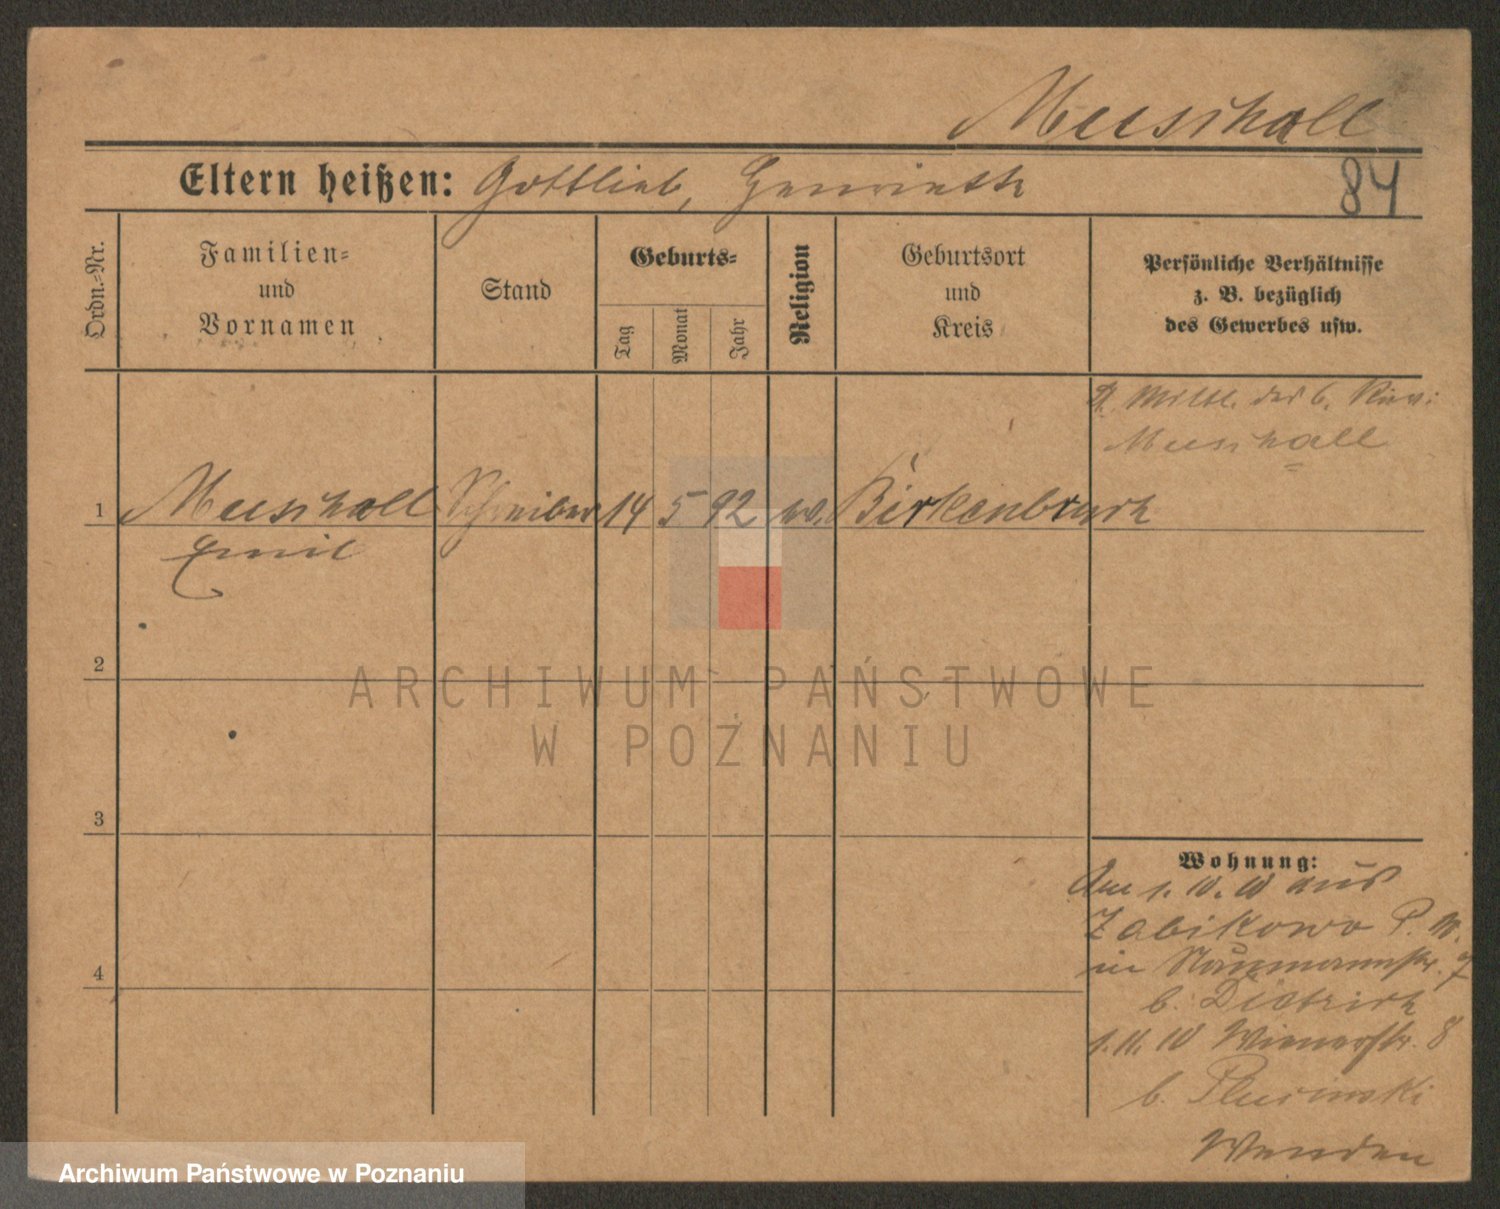 Meuschall
Eltern heißen: Gottlieb, Henriette
84
Ordn.-Nr.
Familien-
und
Vornamen
Stand
Geburts-
Tag
Monat
Jahr
Religion
Geburtsort
und
Kreis
Persönliche Verhältnisse
z. B. bezüglich
des Gewerbes usw.
Mittl. des 6.
Meuschall
1 Meuschall Schreiber 14 5 92 ev. Birkenbruch
Emil
2
ARCHIWUM PAŃSTWOWE
W POZNANIU
3
Wohnung:
Am 1. 10. 10 aus
Zabikowo P. W.
in Naumannstr. 7
b. Dietrich
1. 11. 10 Wienerstr. 8
b.
4
Wenden
Archiwum Państwowe w Poznaniu